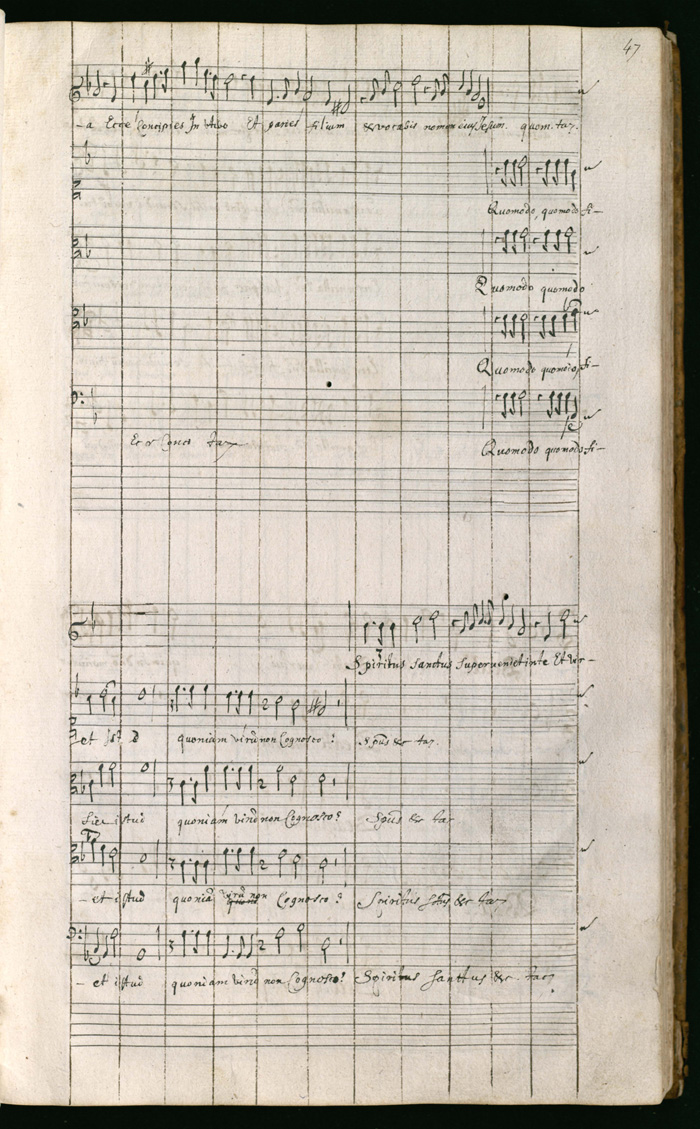 47
-a Ecce Concipies In Utero Et paries filium & vocabis nomen eius Jesum. quom. taz.
Quomodo, quomodo fi-
Quomodo quomodo
Quomodo quomodo, fi-
Ecce Conci taz
Quomodo quomodo fi-
Spiritus Sanctus superueniet in te Et vir-
et quoniam virũ non Cognosco? Spũs &c taz.
fiet istud quoniam virũ non Cognosco? Spũs &c taz
-et istud quoniã virũ non Cognosco? Spiritus Stũs &c taz
-et istud quoniam virũ non Cognosco? Spiritus Santtus &c. taz